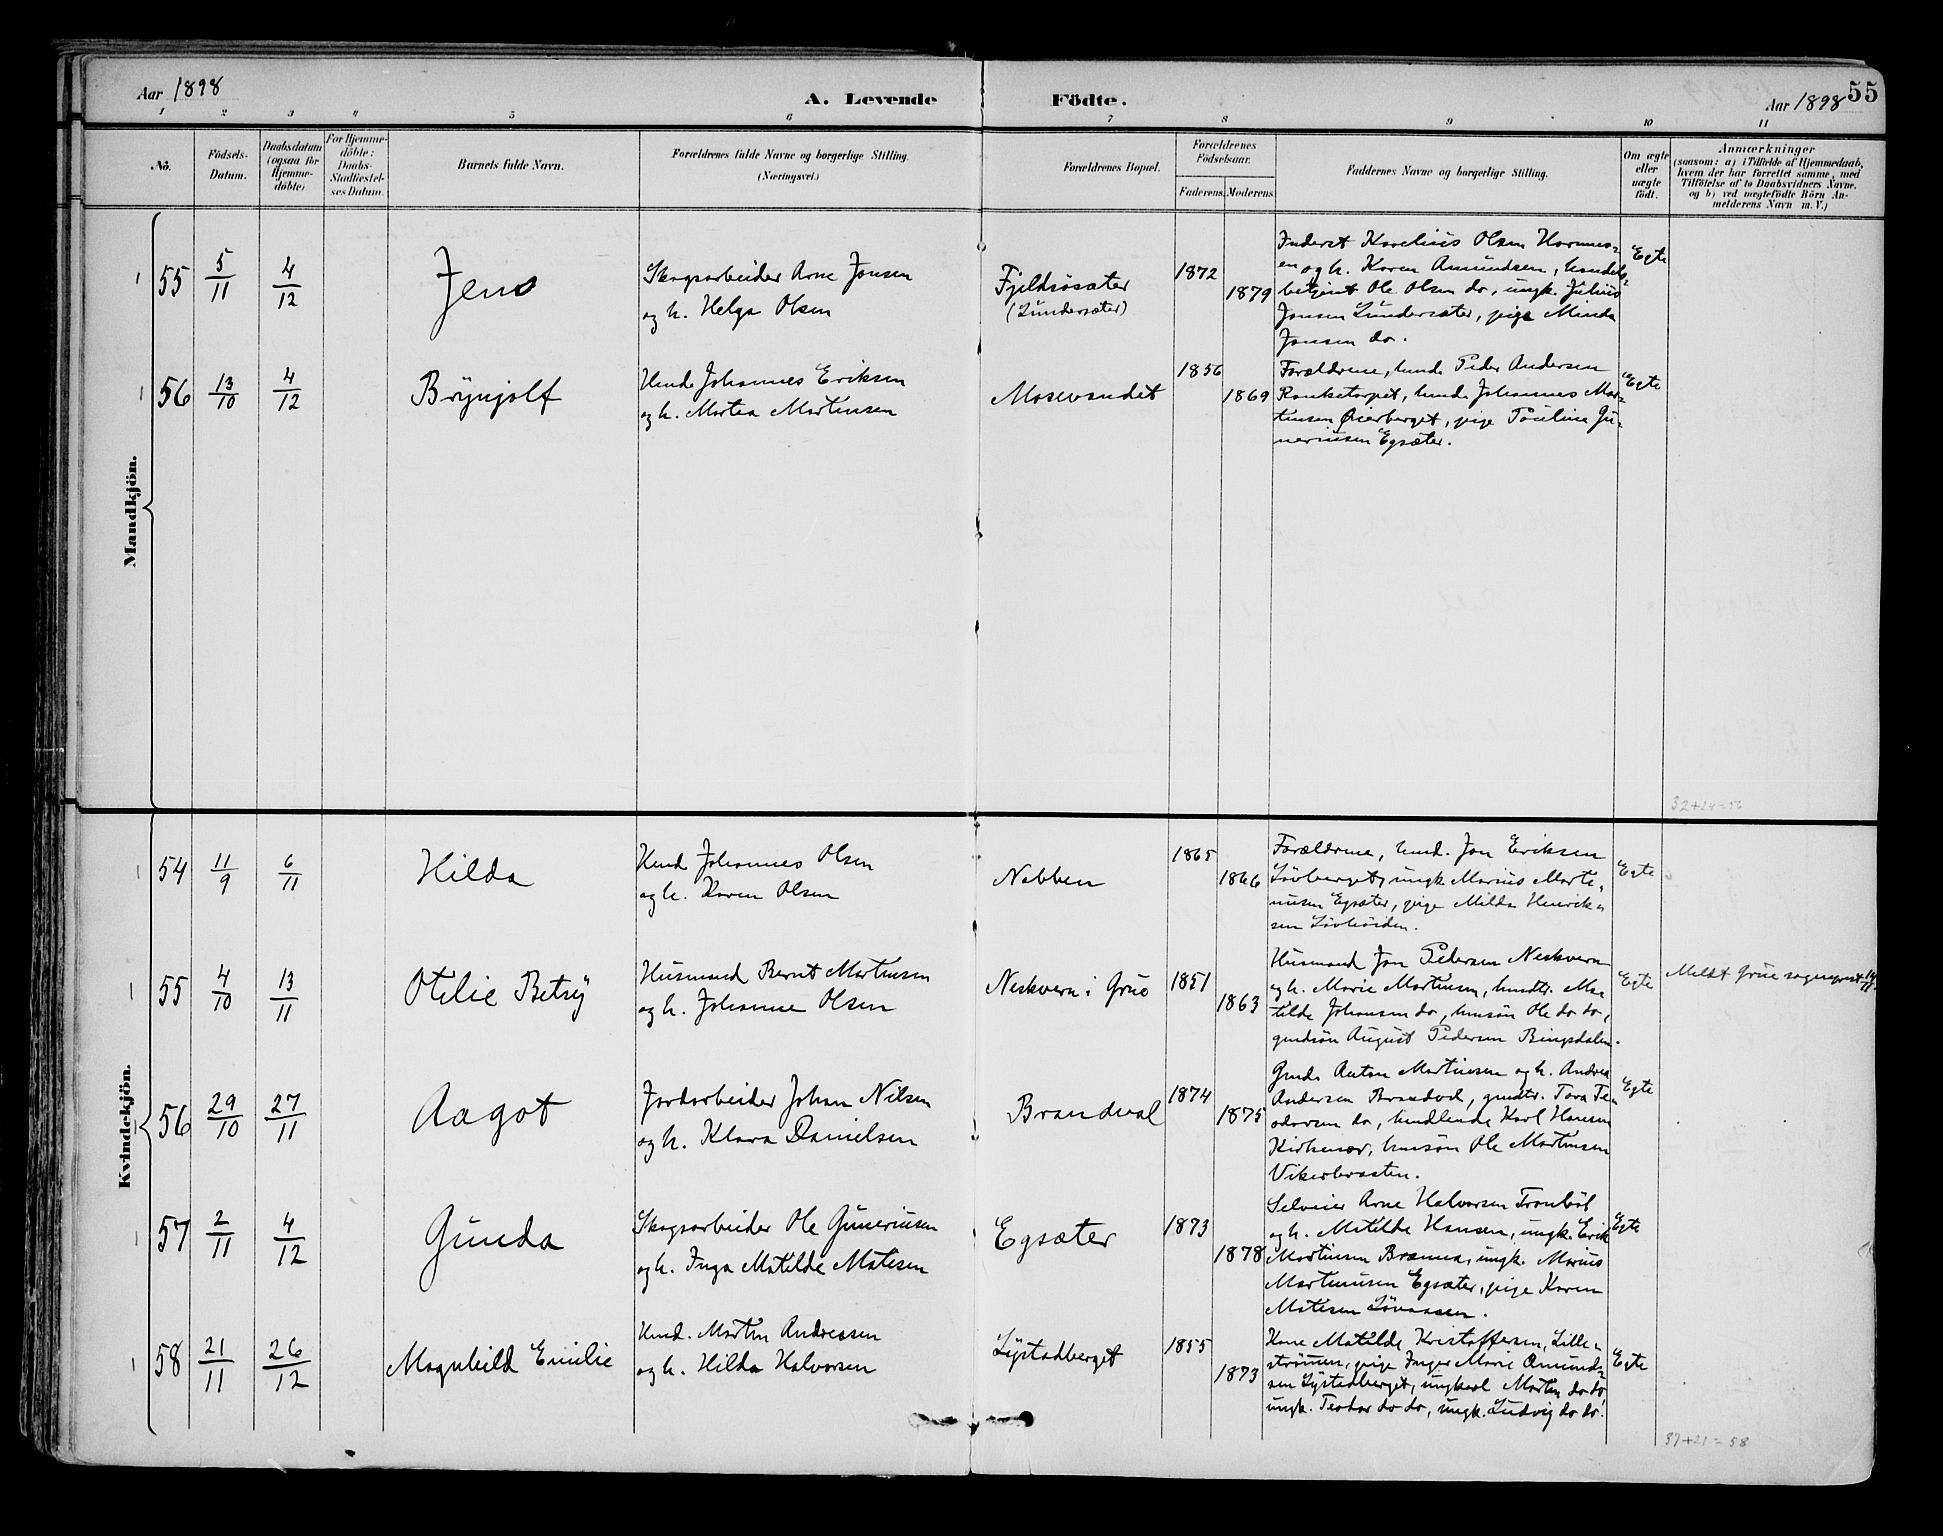 Aar 1898
A. Levende
Födte.
Aar 1898
55
1 2 3 4 5 6 7 8 9 10 11
No.
Födsels-
Datum.
Daabsdatum
(ogsaa for
Hjemme-
döbte).
For Hjemme-
döbte:
Daabs-
Stadfæstel-
ses Datum.
Barnets fulde Navn.
Forældrenes fulde Navne og borgerlige Stilling.
(Næringsvei.)
Forældrenes Bopæl.
Forældrenes
Födselsaar.
Faderens. Moderens.
Faddernes Navne og borgerlige Stilling.
Om ægte
eller
uægte
født.
Anmærkninger
(saasom: a) i Tilfælde af Hjemmedaab,
hvem der har forrettet samme, med
Tilföielse af to Daabsvidners Navne,
og b) ved uægtefödte Börn An-
melderens Navn m. V.)
Mandkjön.
55 5/11 4/12 Jens
Skogsarbeider Arne Jonsen
og h. Helga Olsen
Fjeldsösæter
(Lundersæter)
1872
1879
Inderst Karelius Olsen
en og h. Karen Amundsen, handels-
betjent Ole Olsen do, ungk. Julius
Jonsen Lundersæter, pige Minda
Jonsen do.
Egte
56 13/10 4/12 Brynjolf
Kmd. Johannes Eriksen
og h. Martea Martinsen
Mosevandet
1856
1869
Forældrene, kmd. Peder Andersen
Ronketorpet, kmd. Johannes Mar-
tinsen Øierberget, pige Pauline Gu-
neriusen Egsæter.
Egte
32+24=56
Kvindekjön.
54 11/9 6/11 Hilda
Kmd Johannes Olsen
og h. Karen Olsen
Nabben
1865
1866
Forældrene, kmd. Jon Eriksen
Lövberget, ungk. Marius Marte-
nusen Egsæter, pige Milda Henrik-
sen Lövhöiden.
Egte
55 4/10 13/11 Otelie Betsy
Husmand Bernt Martinsen
og h. Johanne Olsen
Neskvern i Grue
1851
1863
Husmand Jon Pedersen Neskvern
og h. Marie Martinsen, husdtr. Ma-
tilde Johansen do, hussön Ole do do,
grndsön August Pedersen Bingsdalen.
Egte
Meldt Grue sogneprest 14/11
56 29/10 27/11 Aagot
Jordarbeider Johan Nilsen
og h. Klara Danielsen
Brandval
1874
1875
Grmd. Anton Martinsen og h. Andrea
Andersen Brandval, grmdtr. Tora Te-
odorsen do, handlende Karl Hansen
Kirkenær, hussön Ole Martinsen
Vikerbraaten.
Egte
57 2/11 4/12 Gunda
Skogsarbeider Ole Guneriusen
og h. Inga Matilde Matisen
Egsæter
1873
1878
Selveier Arne Halvorsen Tronböl
og h. Matilde Hansen, ungk. Erik
Martinsen Brænna, ungk. Marius
Martinusen Egsæter, pige Karen
Matisen Lövaasen.
Egte
58 21/11 26/12 Magnhild Emilie
Kmd. Martin Andreasen
og h. Hilda Halvorsen
Lystadberget
1855
1873
Kone Matilde Kristoffersen, Lille-
strömmen, pige Inger Marie Amund-
sen Lystadberget, ungkarl Martin do do,
ungk. Teodor do do, ungk. Ludvig do do.
Egte
37+21=58